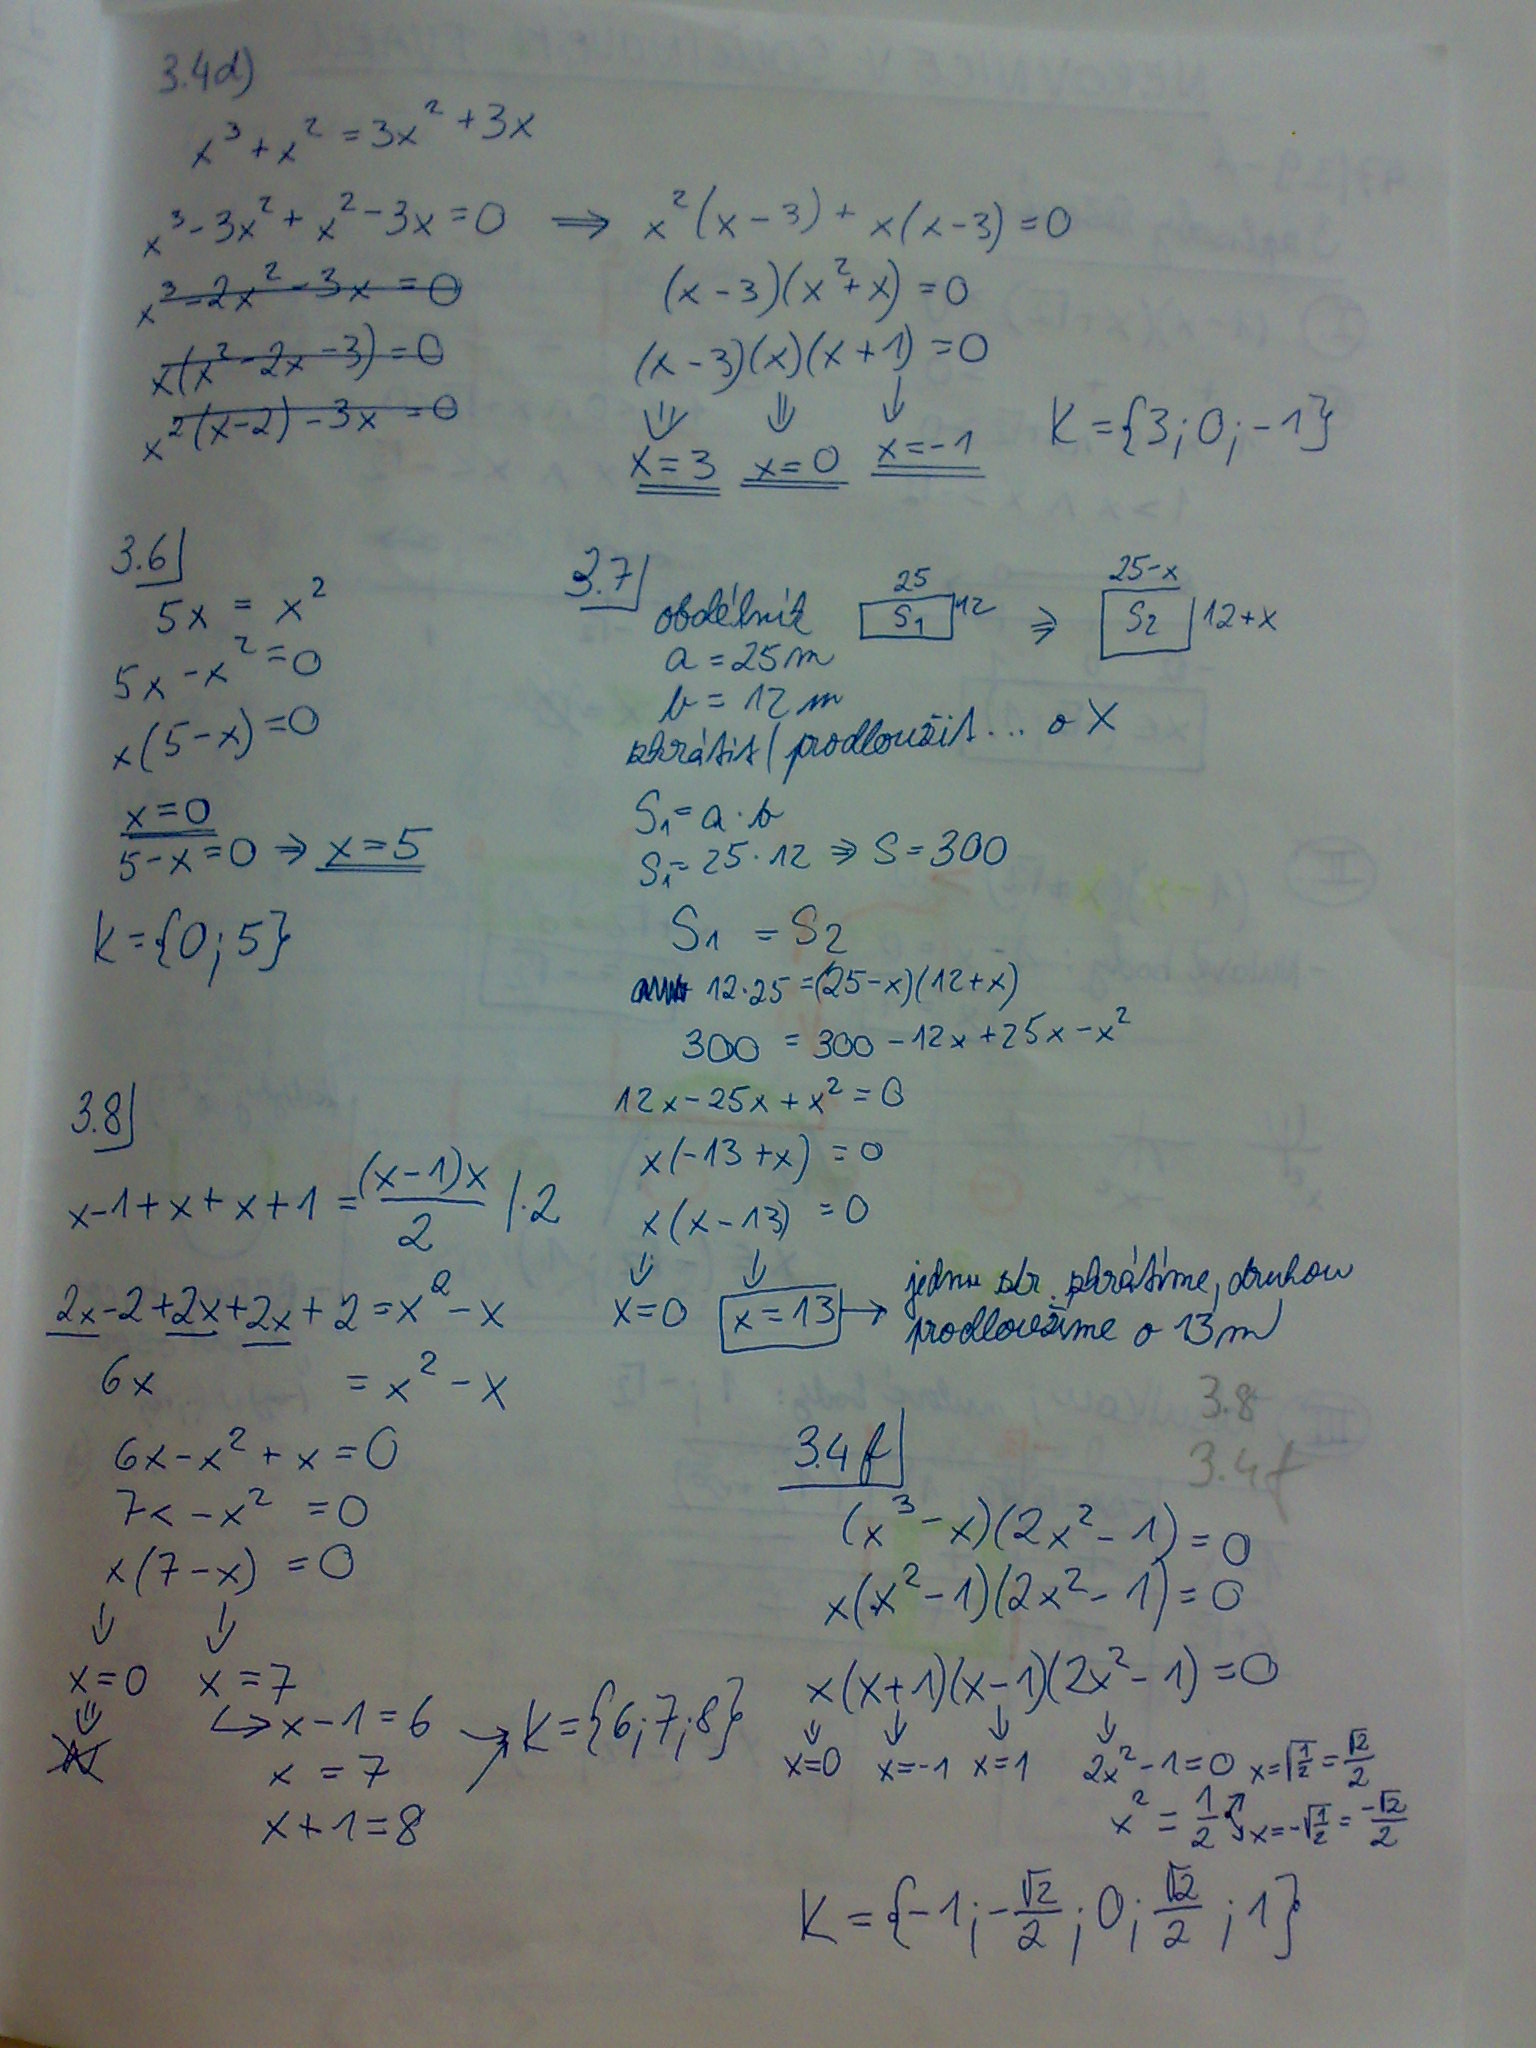 3.4d)
x³ + x² = 3x² + 3x
x³ - 3x² + x² - 3x = 0 ⇒ x²(x - 3) + x(x - 3) = 0
x³ - 2x² - 3x = 0
x(x² - 2x - 3) = 0
x²(x - 2) - 3x = 0
(x - 3)(x² + x) = 0
(x - 3)(x)(x + 1) = 0
⇓ ⇓ ↓
x = 3 x = 0 x = -1
K = {3; 0; -1}
3.6
5x = x²
5x - x² = 0
x(5 - x) = 0
x = 0
5 - x = 0 ⇒ x = 5
K = {0; 5}
3.7
obdélník
25
S₁ 12 ⇒
25-x
S₂ 12+x
a = 25m
b = 12m
zkrátit/prodloužit... o X
S₁ = a · b
S₁ = 25 · 12 ⇒ S = 300
S₁ = S₂
12·25 = (25-x)(12+x)
300 = 300 - 12x + 25x - x²
12x - 25x + x² = 0
x(-13 + x) = 0
x(x - 13) = 0
⇓ ⇓
x = 0 x = 13 → jednu str. zkrátíme, druhou
prodloužíme o 13m
3.8
x-1 + x + x + 1 = (x-1)x/2 /·2
2x - 2 + 2x + 2x + 2 = x² - x
6x = x² - x
6x - x² + x = 0
7x - x² = 0
x(7 - x) = 0
⇓ ⇓
x = 0 x = 7
⇓
N
↳ x - 1 = 6
x = 7
x + 1 = 8
→ K = {6; 7; 8}
3.8
3.4f
3.4f
(x³ - x)(2x² - 1) = 0
x(x² - 1)(2x² - 1) = 0
x(x + 1)(x - 1)(2x² - 1) = 0
⇓ ⇓ ⇓ ⇓
x=0 x=-1 x=1 2x² - 1 = 0 x=√(1/2) = √2/2
x² = 1/2 x=-√(1/2) = -√2/2
K = {-1; -√2/2; 0; √2/2; 1}